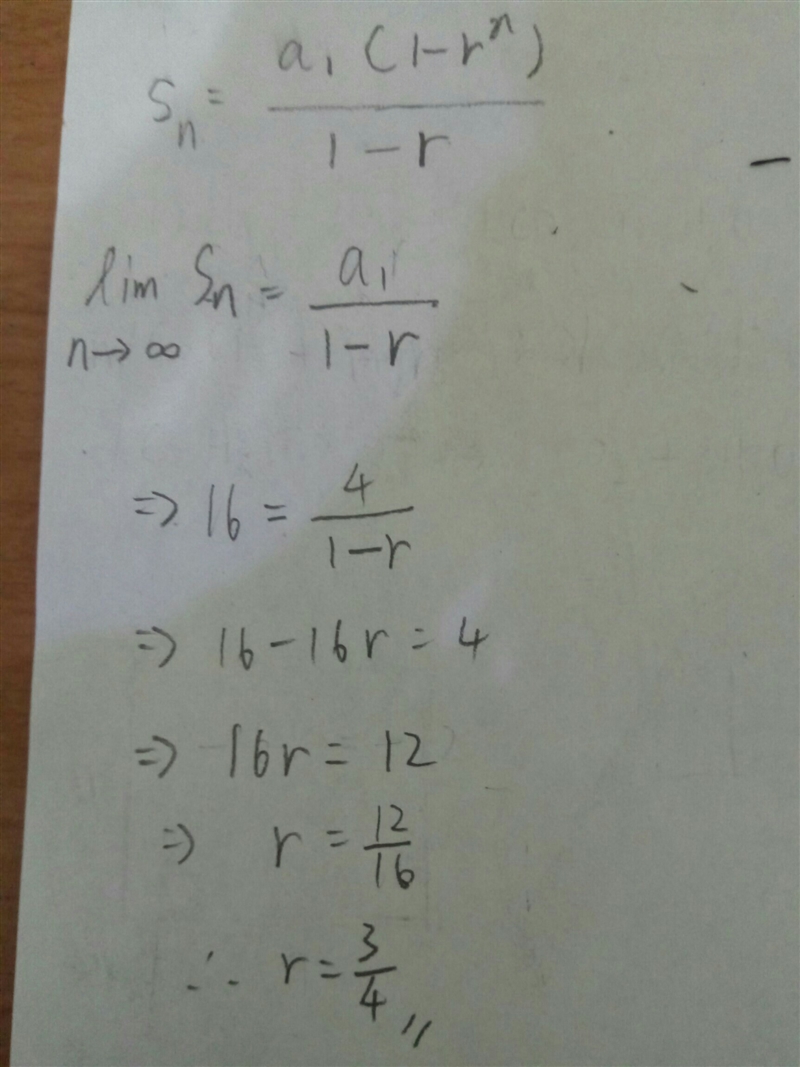 Sₙ = a₁(1-rⁿ) / 1-r
lim n→∞ Sₙ = a₁ / 1-r
⇒ 16 = 4 / 1-r
⇒ 16-16r = 4
⇒ 16r = 12
⇒ r = 12/16
∴ r = 3/4 〃